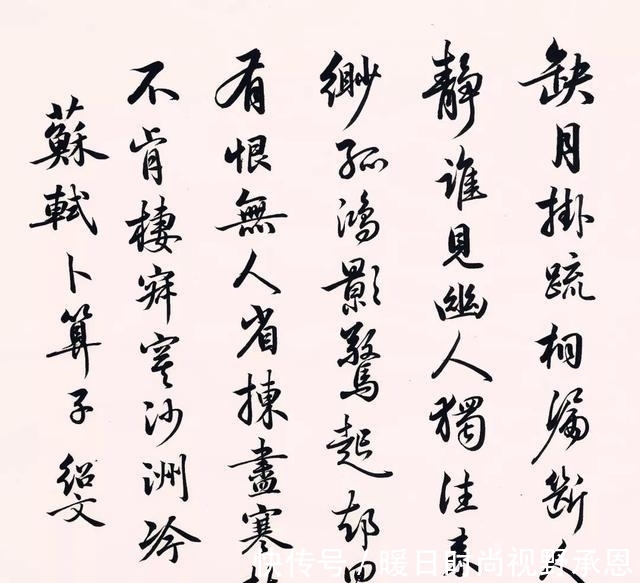 缺月掛疏桐漏斷
靜誰見幽人獨往
緲孤鴻影驚起却
有恨無人省揀盡寒
不肯棲寂寞沙洲冷
蘇軾卜算子 紹文
快传号/暖日时尚视野承恩